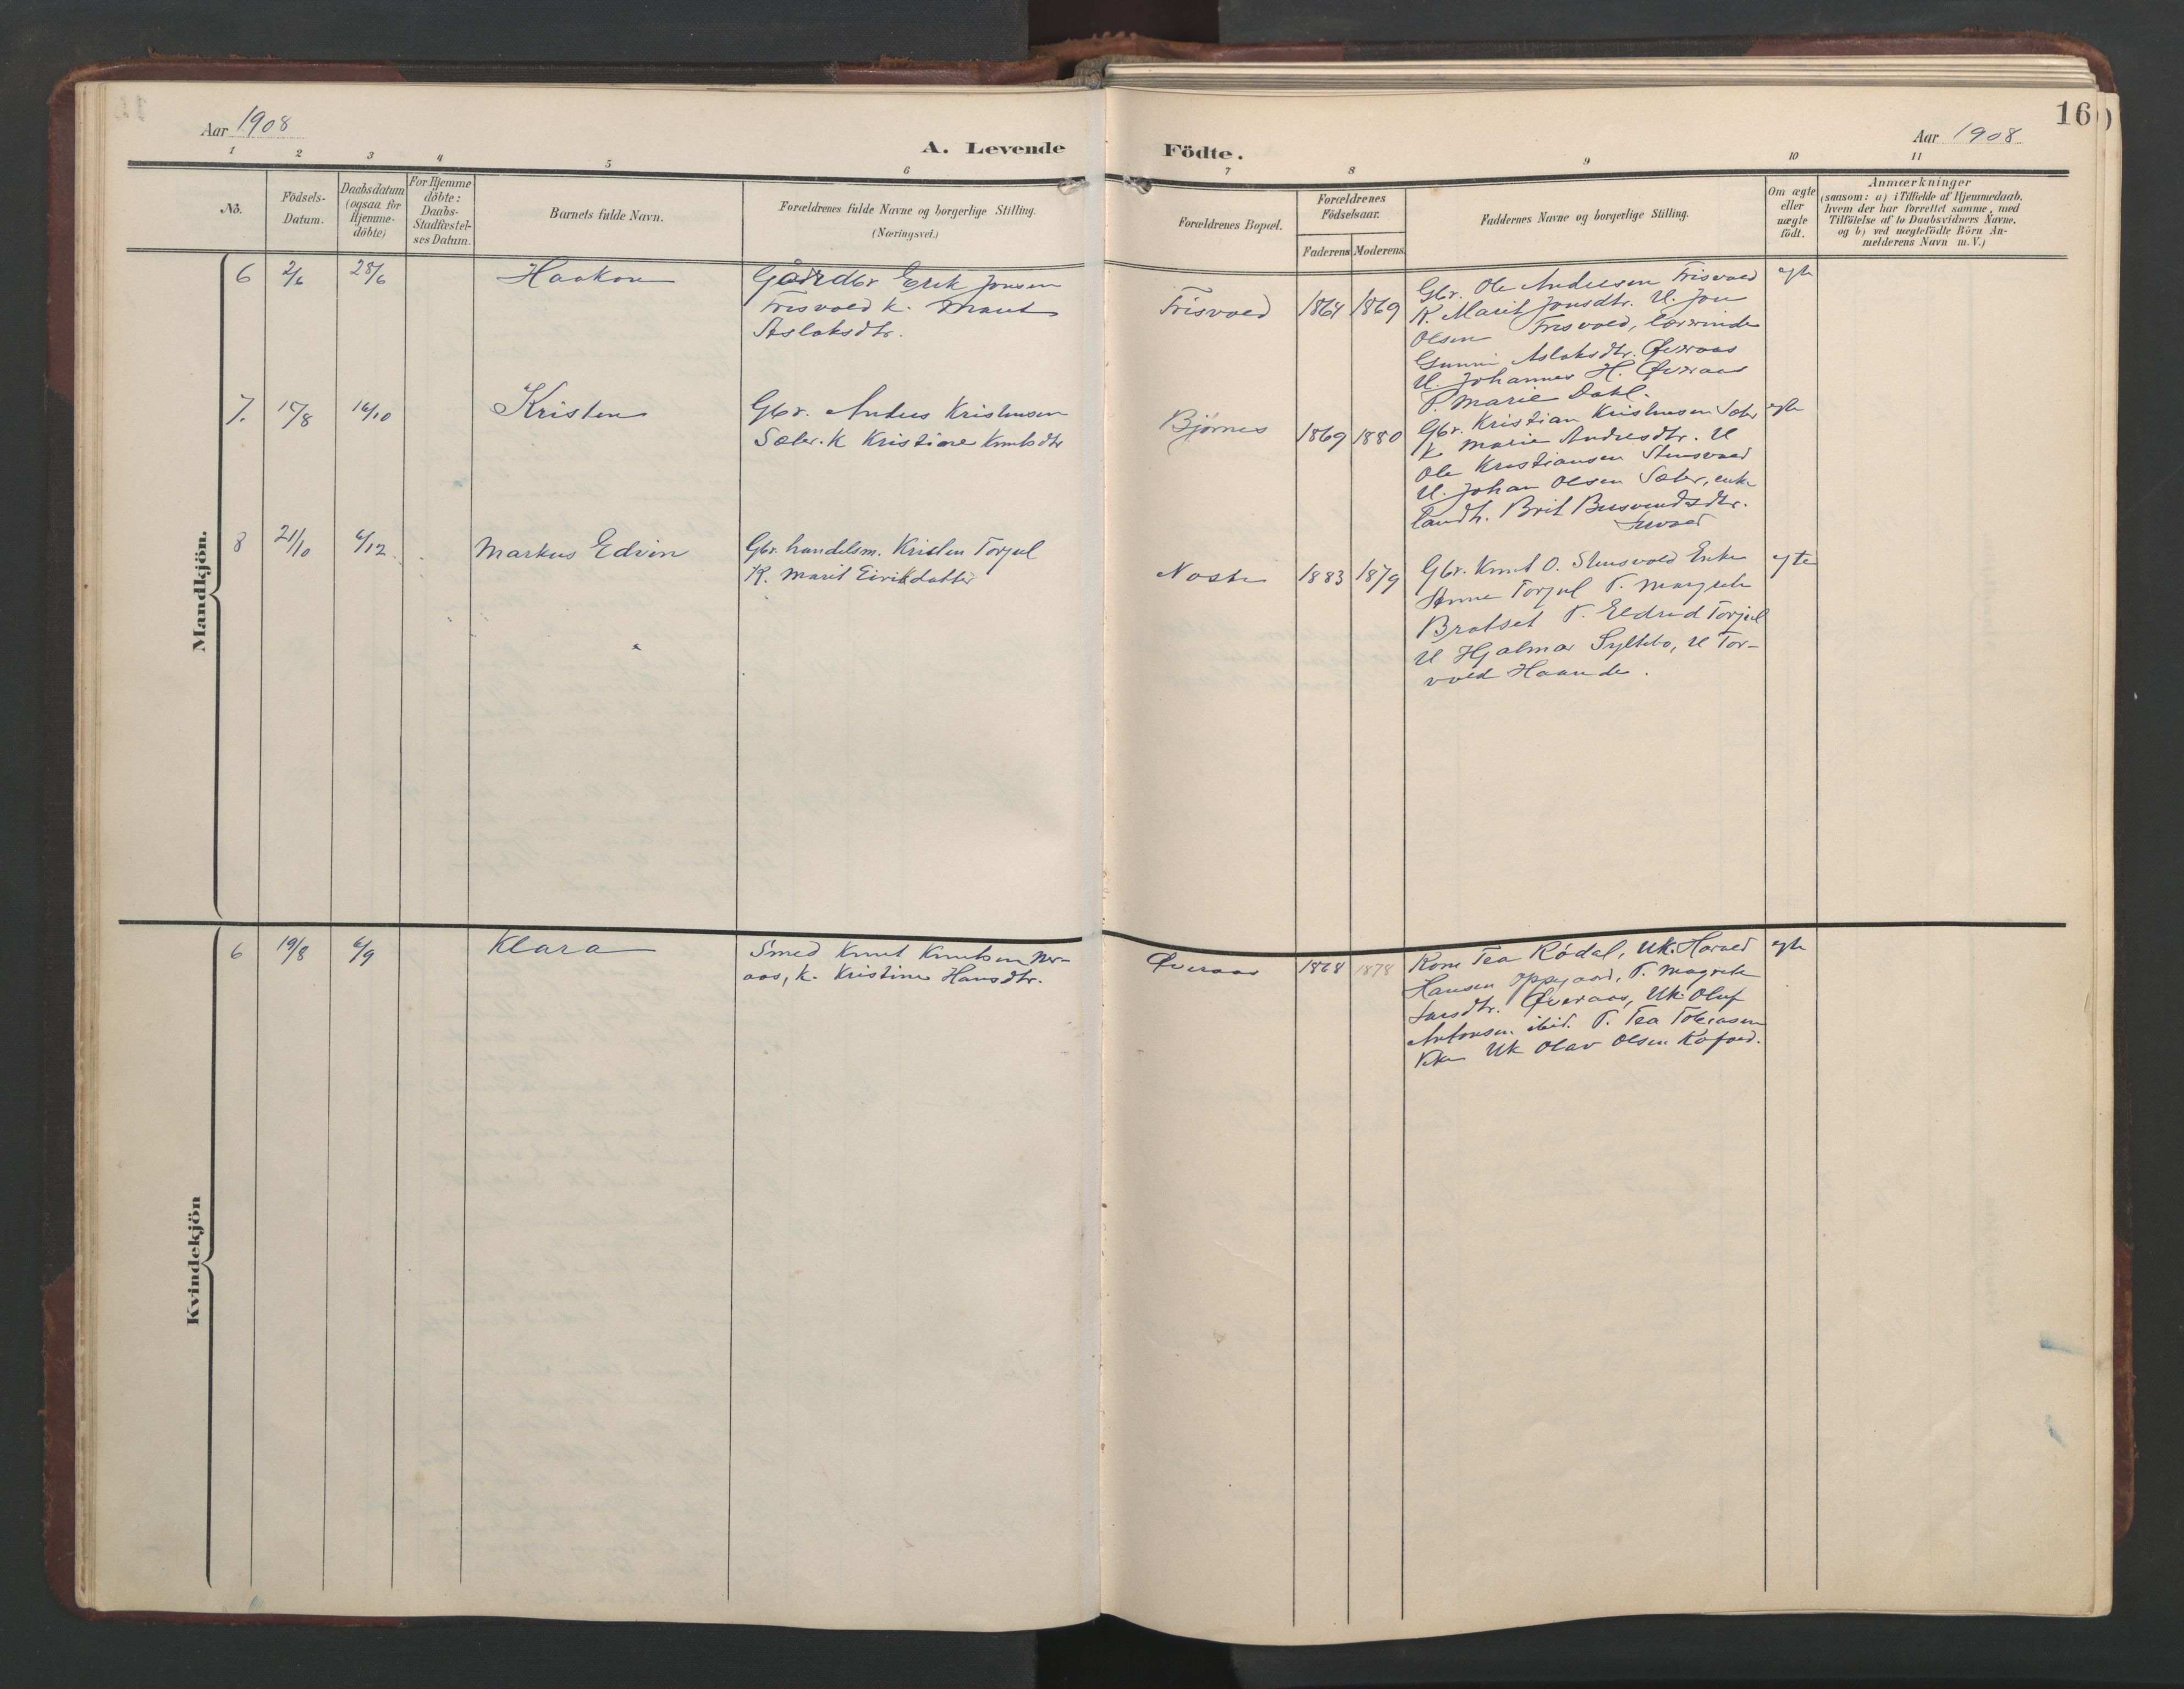 Aar 1908
A. Levende
Födte.
Aar 1908
16
1 2 3 4 5 6 7 8 9 10 11
No.
Födsels-
Datum.
Daabsdatum
(ogsaa for
Hjemme-
döbte)
For Hjemme
döbte:
Daabs-
Stadfæstel-
ses Datum.
Barnets fulde Navn.
Forældrenes fulde Navne og borgerlige Stilling.
(Næringsvei.)
Forældrenes Bopæl.
Forældrenes
Födselsaar.
Faderens Moderens
Faddernes Navne og borgerlige Stilling.
Om ægte
eller
uægte
födt.
Anmærkninger
(saasom: a) i Tilfælde af Hjemmedaab,
hvem der har forrettet samme, med
Tilföielse af to Daabsvidners Navne,
og b) ved uægtefödte Börn An-
melderens Navn m. V.)
Mandkjön.
6 2/6 28/6 Haakon
Gårdbr Erik Jonsen
Frisvold k. Marit
Aslaksdtr.
Frisvold 1864 1869
Gbr. Ole Andersen Frisvold
K. Marit Jonsdtr. U. Jon
Olsen Frisvold, lærerinde
Gunni Aslaksdtr. Øveraas
U. Johannes H. Øveraas
P. Marie Dahl.
egte
7. 15/8 16/10 Kristen
Gbr. Anders Kristensen
Sæter. K Kristine Knutsdtr
Bjørnes 1869 1880
Gbr. Kristian Kristensen Sæter
K Marie Andresdtr. U
Ole Kristiansen Stensvold
U. Johan Olsen Sæter, enke
landh. Brit Bersvendsdtr.
egte
8 21/10 6/12 Markus Edvin
Gbr. handelsm. Kristen Torjul
K. Marit Eirikdatter
Nøste 1883 1879
Gbr. Knut O. Stensvold Enke
Anne Torjul P. Margrete
Bratset P. Eldrid Torjul
U Hjalmar Syltebø, U Tor-
vold Haande.
egte
Kvindekjön
6 19/8 6/9 Klara
Smed Knut Knutsen Øver-
aas, k. Kristine Hansdtr.
Øveraas 1868 1878
Kone Tea Rødal, Uk. Harald
Hansen Oppegaard, P. Magrete
Larsdtr. Øveraas, Uk Oluf
Antonsen ibid. P. Tea Tobiasen
Uk Olav Olsen Kafoed.
egte